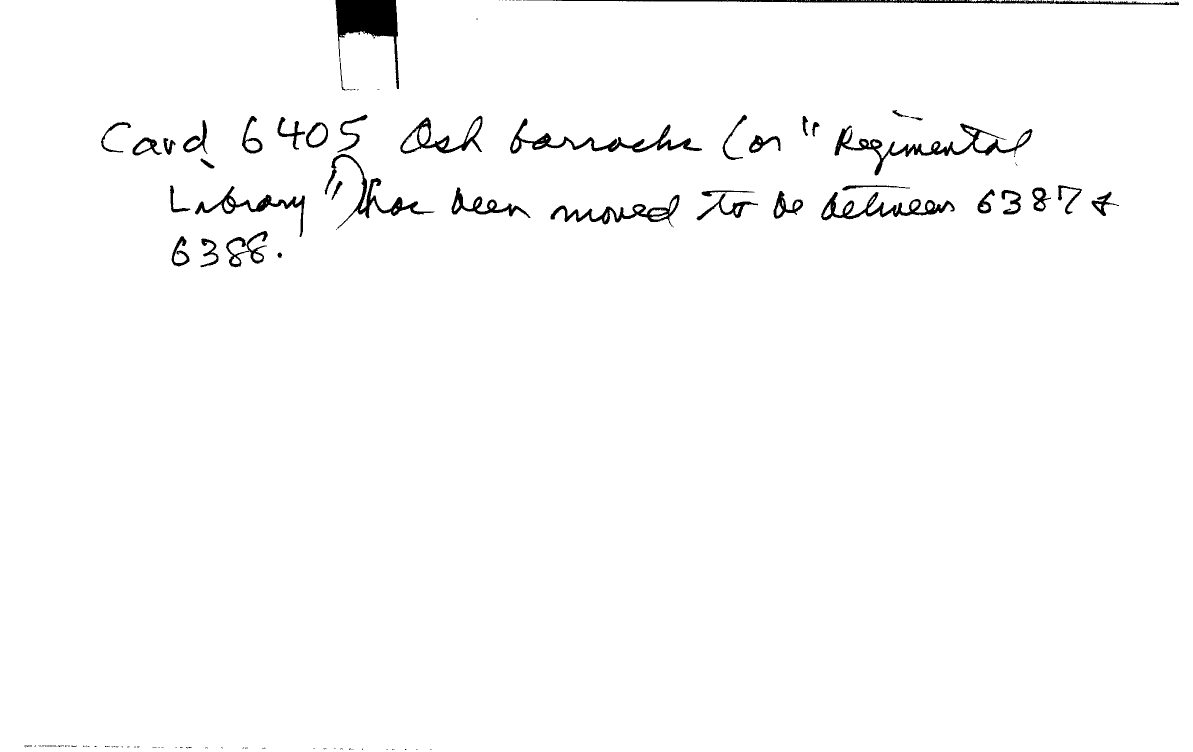 Card 6405 Osh barracks (or "Regimental
Library") has been moved to be between 6387 &
6388.